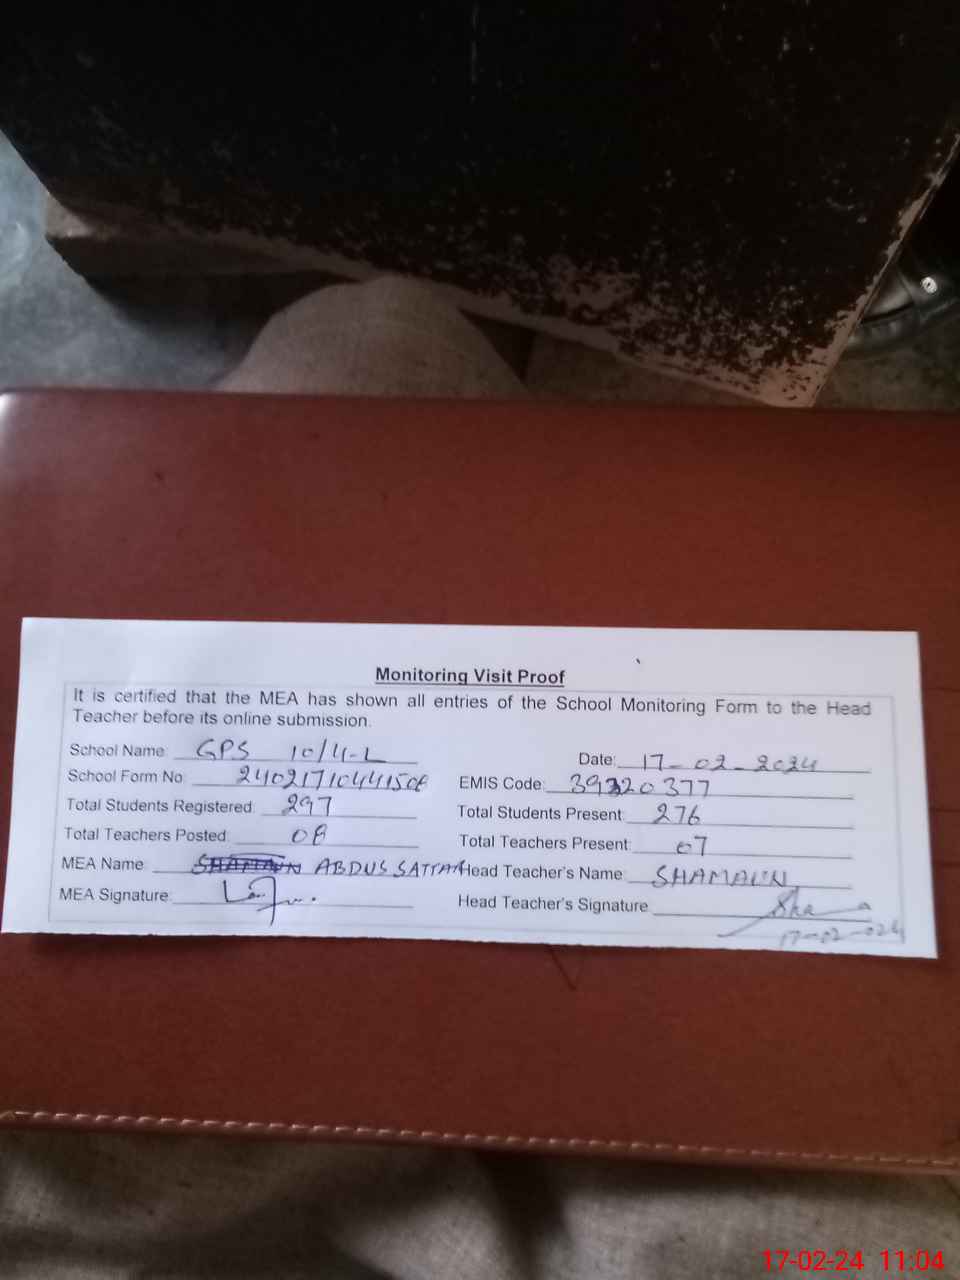 Monitoring Visit Proof
It is certified that the MEA has shown all entries of the School Monitoring Form to the Head
Teacher before its online submission.
School Name: GPS 10/4-L
Date: 17-02-2024
School Form No: 24021710441508
EMIS Code: 39320377
Total Students Registered: 297
Total Students Present: 276
Total Teachers Posted: 08
Total Teachers Present: 07
MEA Name: SHAMAUN ABDUS SATTAR
Head Teacher's Name: SHAMAUN
MEA Signature:
Head Teacher's Signature Sha
17-02-024
17-02-24 11:04